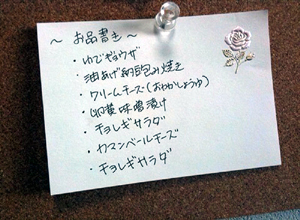 ～ お品書き ～
・ゆでギョウザ
・油あげ納豆包み焼き
・クリームチーズ(おかかしょうゆ)
・卵黄味噌漬け
・チョレギサラダ
・カマンベールチーズ
・チョレギサラダ